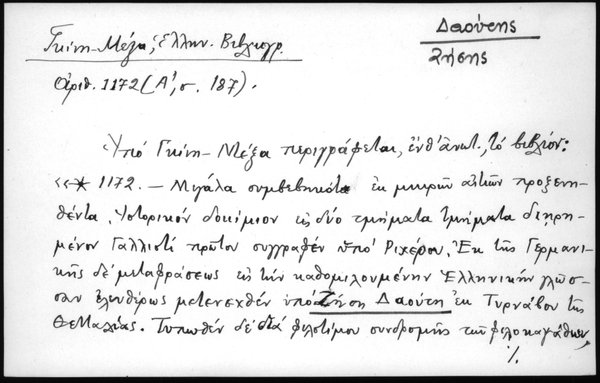 Δαούτης
Ζήσης
Γκίνη-Μέξα, Ἑλλην. Βιβλιογρ.
ἀριθ. 1172 (Α', σ. 187).
Ὑπὸ Γκίνη-Μέξα περιγράφεται, ἐνθ' ἀνωτ., τὸ βιβλίον:
«* 1172. – Μεγάλα συμβεβηκότα ἐκ μικρῶν αἰτιῶν προξενη-
θέντα. Ἱστορικὸν δοκίμιον εἰς δύο τμήματα τμήματα διῃρη-
μένον Γαλλιστὶ πρῶτον συγγραφὲν ὑπὸ Ριχέρου. Ἐκ τῆς Γερμανι-
κῆς δὲ μεταφράσεως εἰς τὴν καθομιλουμένην Ἑλληνικὴν γλῶσ-
σαν ἐλευθέρως μετενεχθὲν ὑπὸ Ζήση Δαούτη ἐκ Τυρνάβου τῆς
Θετταλίας. Τυπωθὲν δὲ διὰ φιλοτίμου συνδρομῆς τῶν φιλοκαγάθων,
./.